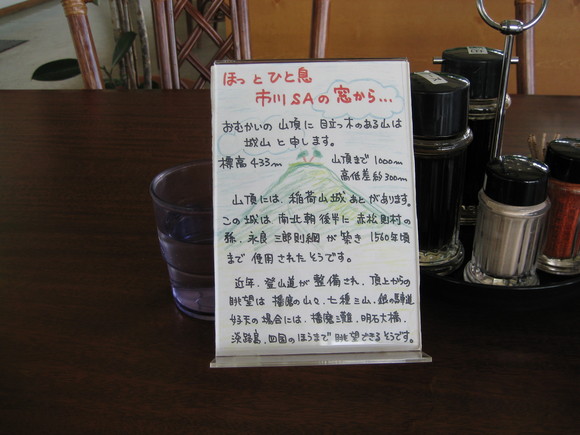 ほっとひと息
市川SAの窓から...
おむかいの山頂に目立つ木のある山は
城山と申します。
標高433m 山頂まで1000m
高低差約300m
山頂には、稲荷山城あとがあります。
この城は南北朝後半に赤松則村の
孫、永良三郎則綱が築き1560年頃
まで使用されたそうです。
近年、登山道が整備され、頂上からの
眺望は播磨の山々、七種三山、銀の馬車道
好天の場合には、播磨灘、明石大橋、
淡路島、四国のほうまで眺望できるそうです。